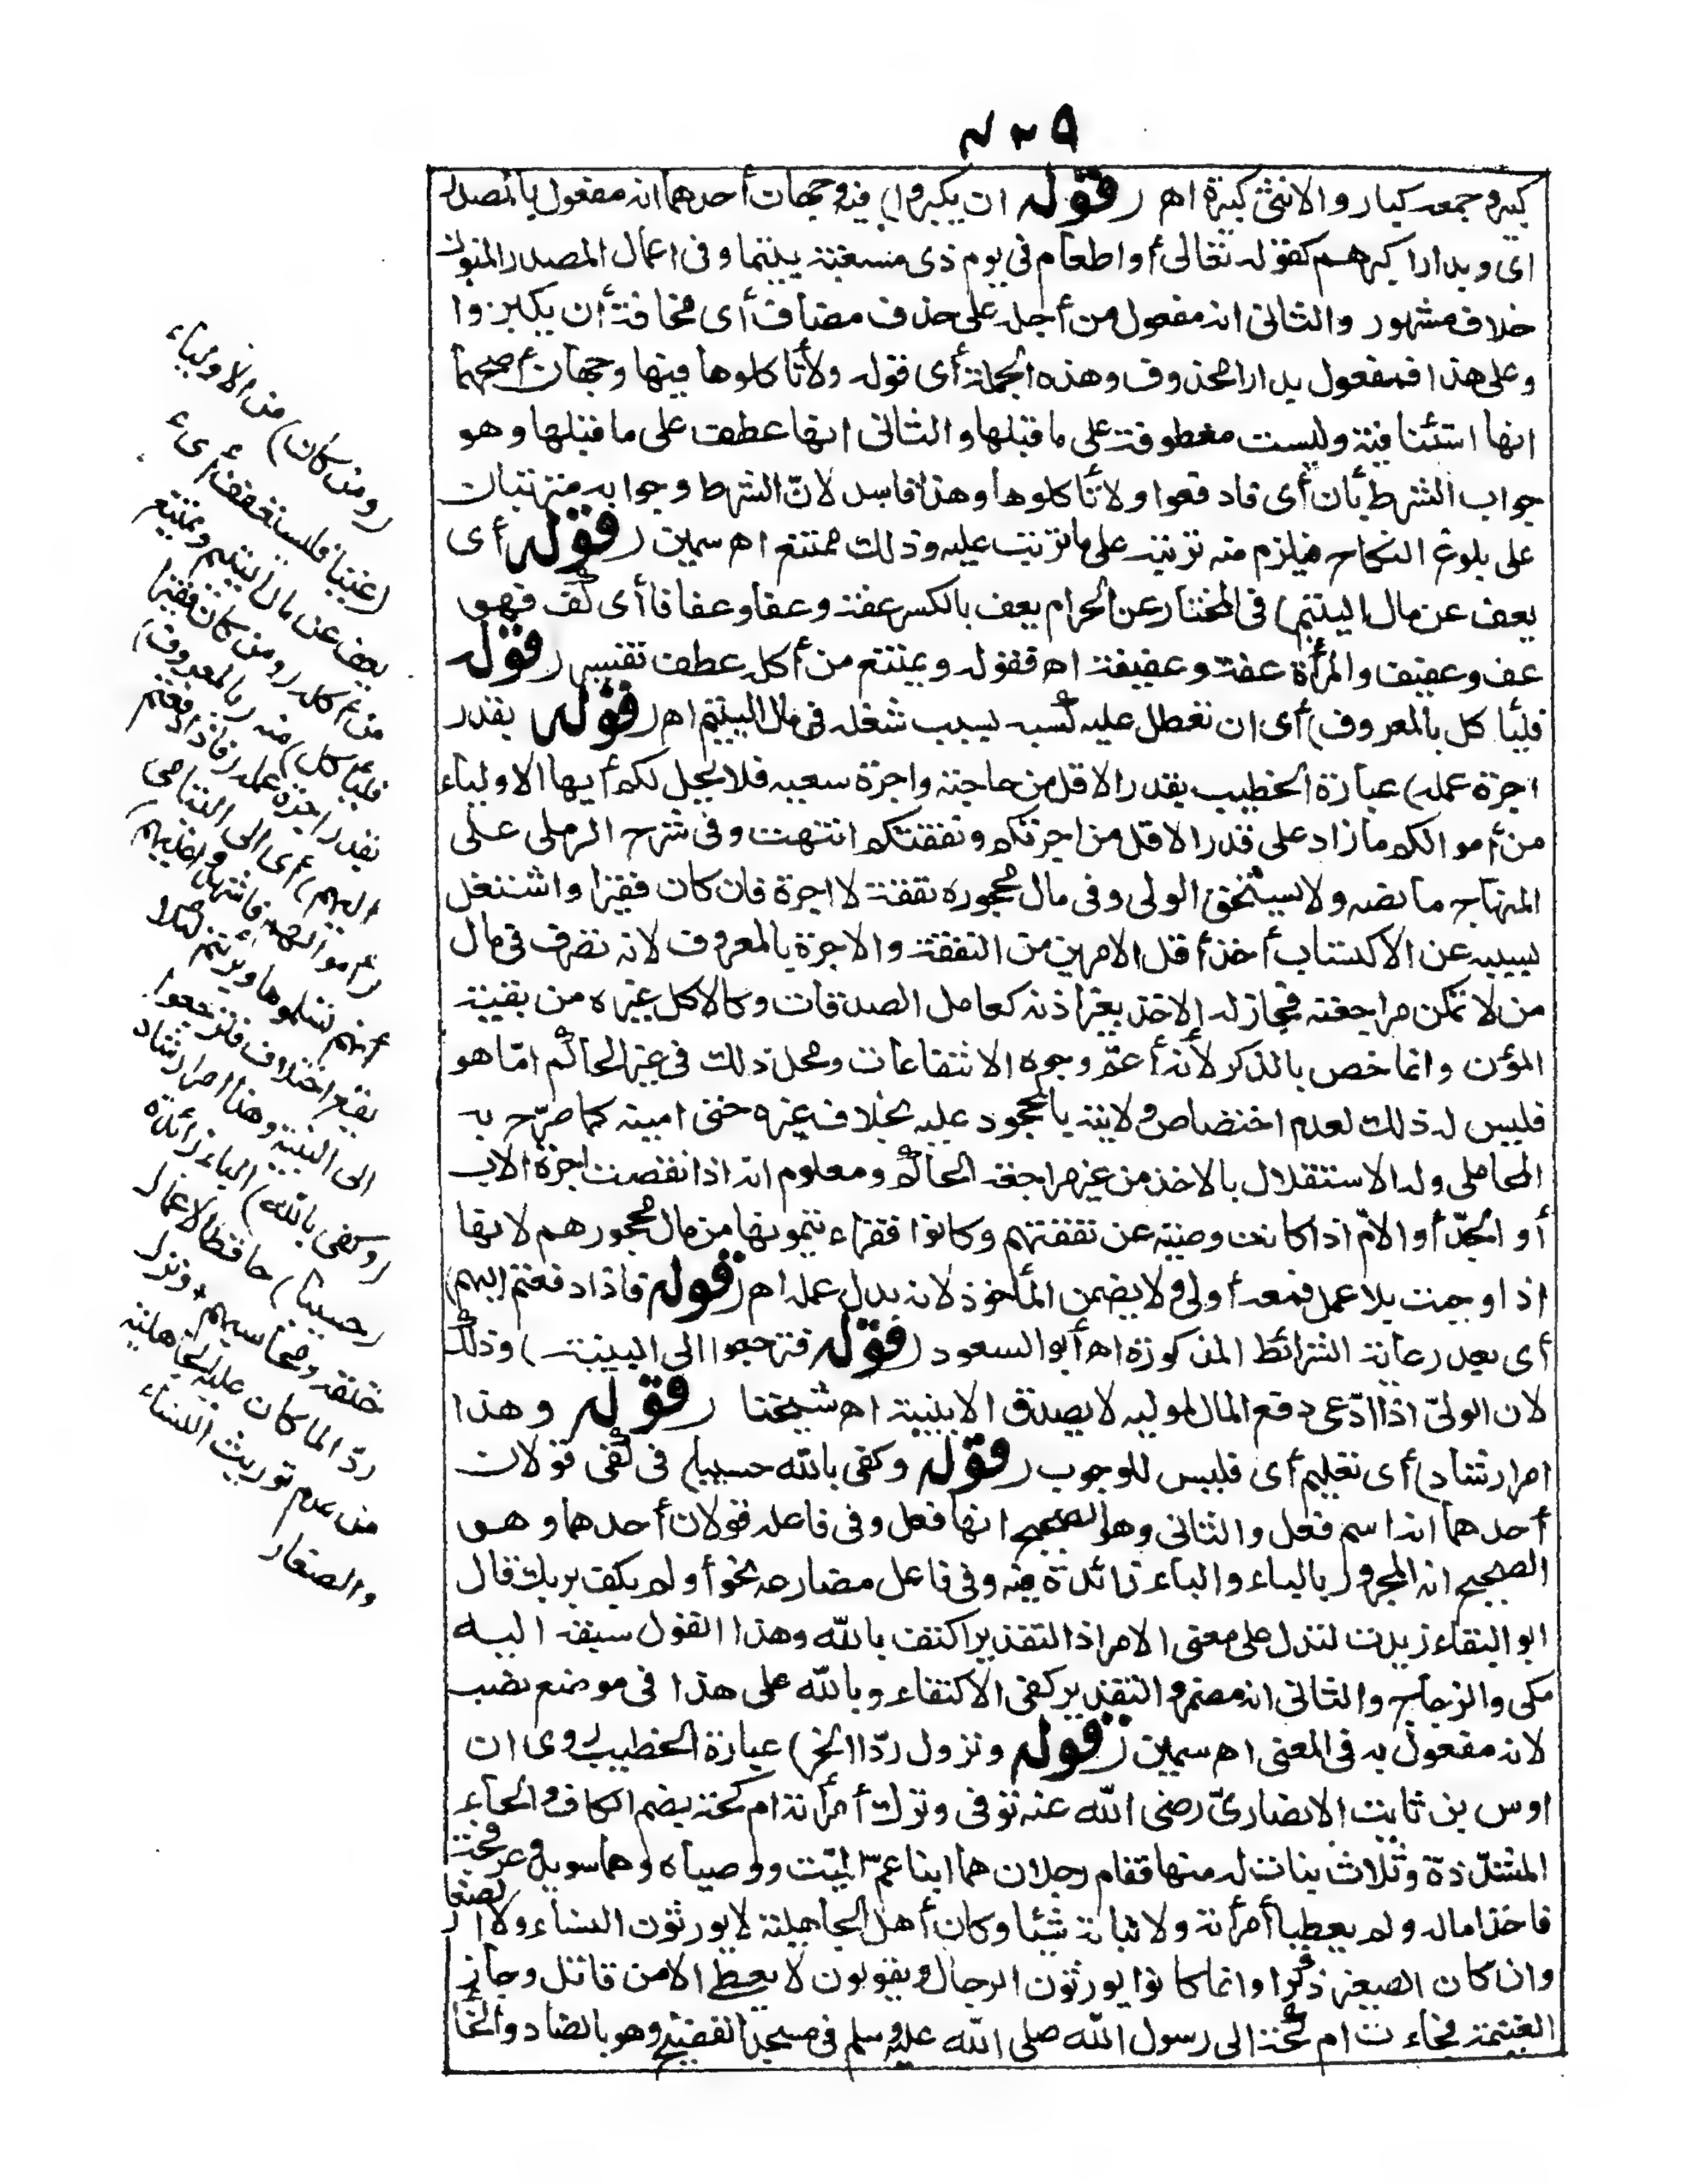 كبير وجمعه كبار والانثى كبيرة اه (قوله ان يكبروا) فيه وجهان أحدهما انه مفعول بالمصدر
اى وبدارا كبرهم كقوله تعالى أو اطعام في يوم ذى مسغبة يتيما وفى اعمال المصدر المنون
خلاف مشهور والثانى انه مفعول من أجله على حذف مضاف أى مخافة أن يكبروا
وعلى هذا فمفعول بدارا محذوف وهذه الجملة أى قوله ولا تأكلوها فيها وجهان أصحهما
انها استئنافية وليست معطوفة على ما قبلها والثانى انها عطف على ما قبلها وهو
جواب الشرط بأن أى فادفعوا ولا تأكلوها وهذا فاسد لانّ الشرط وجوابه مترتبان
على بلوغ النكاح فيلزم منه ترتبه على ما ترتب عليه وذلك ممتنع اه سمين (قوله أى
يعف عن مال اليتيم) فى المختار عن الحرام يعف بالكسر عفة وعفا وعفافا أى كف فهو
عف وعفيف والمرأة عفة وعفيفة اه فقوله ويمتنع من أكله عطف تفسير (قوله
فليأكل بالمعروف) أى ان تعطل عليه كسبه بسبب شغله فى مال اليتيم اه (قوله بقدر
اجرة عمله) عبارة الخطيب بقدر الاقل من حاجته واجرة سعيه فلا يحل لكم أيها الاولياء
من أموالكم ما زاد على قدر الاقل من اجرتكم ونفقتكم انتهت وفى شرح الرملى على
المنهاج ما نصه ولا يستحق الولى وفى مال محجوره نفقة لا اجرة فان كان فقيرا واشتغل
بسببه عن الاكتساب أخذ أقل الامرين من النفقة والاجرة بالمعروف لانه تصرف فى مال
من لا تمكن مراجعته فجاز له الاخذ بغير اذنه كعامل الصدقات وكالاكل غيره من بقية
المؤن وانما خص بالذكر لأنه أعمّ وجوه الانتفاعات ومحل ذلك فى غير الحاكم امّا هو
فليس له ذلك لعدم اختصاص ولايته بالمحجور عليه بخلاف غيره حتى امينه كما صرّح به
المحاملى وله الاستقلال بالاخذ من غير مراجعة الحاكم ومعلوم انه اذا نقصت اجرة الاب
أو الجدّ أو الامّ اذا كانت وصية عن نفقتهم وكانوا فقراء تتمونها من مال محجورهم لانها
اذا وجبت بلا عمل فمعه أولى ولا يضمن المأخوذ لانه بدل عمله اه (قوله فاذا دفعتم اليهم)
أى بعد رعاية الشرائط المذكورة اه أبو السعود (قوله فترجعوا الى البينة) وذلك
لان الولىّ اذا ادّعى دفع المال لموليه لا يصدق الا ببينة اه شيخنا (قوله وهذا
امر ارشاد) أى تعليم أى فليس للوجوب (قوله وكفى بالله حسيبا) فى كفى قولان
أحدهما انه اسم فعل والثانى وهو الصحيح انها فعل وفى فاعله قولان أحدهما وهو
الصحيح انه المجرور بالباء والباء زائدة فيه وفى فاعل مضارعه نحو أولم يكف بربك قال
ابو البقاء زيدت لتدل على معنى الامر اذ التقدير اكتف بالله وهذا القول سبقه اليه
مكى والزجاج والثانى انه مضمر والتقدير كفى الاكتفاء وبالله على هذا فى موضع نصب
لانه مفعول به فى المعنى اه سمين (قوله ونزول ردّا الخ) عبارة الخطيب روى ان
اوس بن ثابت الانصارىّ رضى الله عنه توفى وترك أمرأته ام كحة بضم الكاف والحاء
المشدّدة وثلاث بنات له منها فقام رجلان هما ابنا عمّ الميّت ووصياه وهما سويد وعرفجة
فاخذا ماله ولم يعطيا أمرأته ولا بناته شيئا وكان أهل الجاهلية لا يورثون النساء ولا الصغار
وان كان الصغير ذكرا وانما كانوا يورثون الرجال ويقولون لا يعطى الا من قاتل وحاز
الغنيمة فجاءت ام كحة الى رسول الله صلى الله عليه وسلم فى مسجد الفضيخ وهو بالضاد والخا
(ومن كان) من الاولياء
(غنيا فليستعفف) أى
يعف عن مال اليتيم ويمتنع
من أكله (ومن كان فقيرا
فليأكل) منه (بالمعروف)
بقدر اجرة عمله (فاذا دفعتم
اليهم) أى الى اليتامى
(أموالهم فاشهدوا عليهم)
أنهم تسلموها وبرئتم لئلا
يقع اختلاف فترجعوا
الى البينة وهذا امر ارشاد
(وكفى بالله) الباء زائدة
(حسيبا) حافظا لاعمال
خلقه ومحاسبهم * ونزل
ردّا لما كان عليه الجاهلية
من عدم توريث النساء
والصغار